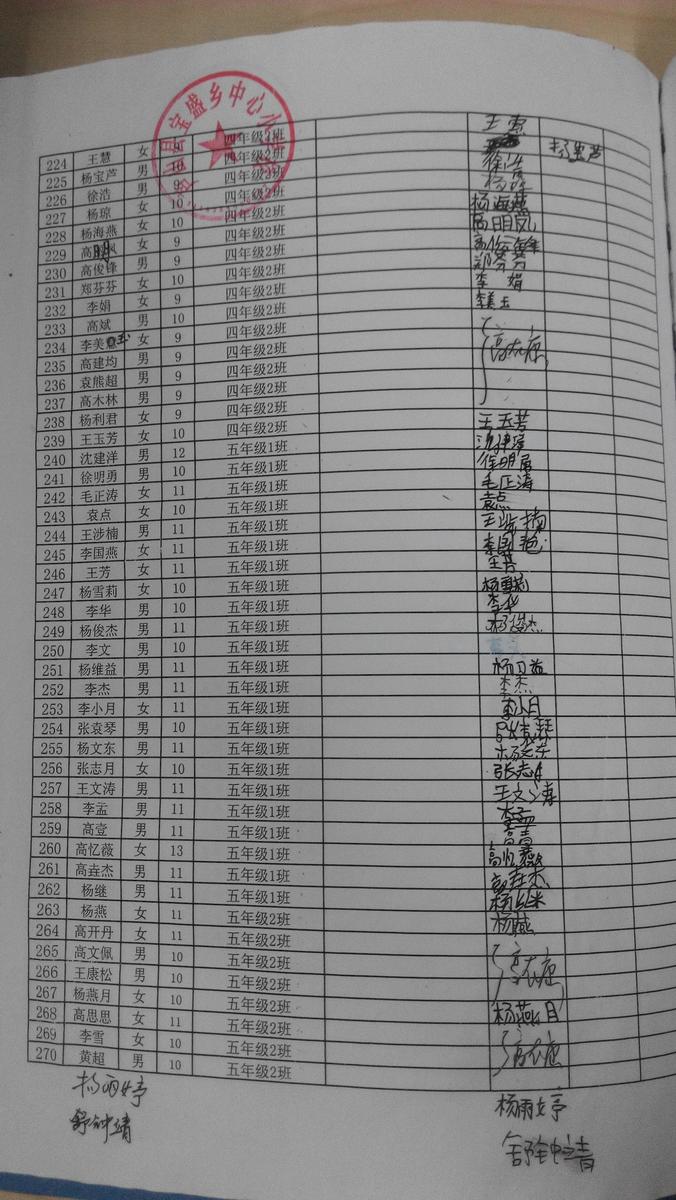 山县宝盛乡中心小学
224 王慧 女 四年级1班 王惠
225 杨宝芦 男 10 四年级2班 杨宝芦
226 徐浩 男 9 四年级2班 徐浩
227 杨琼 女 10 四年级2班 杨琼
228 杨海燕 女 10 四年级2班 杨海燕
229 高明凤 女 9 四年级2班 高明凤
230 高俊锋 男 9 四年级2班 高俊锋
231 郑芬芬 女 10 四年级2班 郑芬芬
232 李娟 女 9 四年级2班 李娟
233 高斌 男 10 四年级2班
234 李美玉 女 9 四年级2班 李美玉
235 高建均 男 9 四年级2班
236 袁熊超 男 9 四年级2班
237 高木林 男 9 四年级2班
238 杨利君 女 9 四年级2班
239 王玉芳 女 10 四年级2班 王玉芳
240 沈建洋 男 12 五年级1班 沈建洋
241 徐明勇 男 10 五年级1班 徐明勇
242 毛正涛 女 11 五年级1班 毛正涛
243 袁点 女 10 五年级1班 袁点
244 王涉楠 男 11 五年级1班 王涉楠
245 李国燕 女 11 五年级1班 李国艳
246 王芳 女 11 五年级1班 王芳
247 杨雪莉 女 10 五年级1班 杨雪莉
248 李华 男 10 五年级1班 李华
249 杨俊杰 男 11 五年级1班 杨俊杰
250 李文 男 10 五年级1班
251 杨维益 男 11 五年级1班
252 李杰 男 11 五年级1班 李杰
253 李小月 女 11 五年级1班 李小月
254 张袁琴 男 10 五年级1班
255 杨文东 男 11 五年级1班
256 张志月 女 10 五年级1班 张志月
257 王文涛 男 11 五年级1班 王文涛
258 李孟 男 11 五年级1班 李孟
259 高壹 男 11 五年级1班 高壹
260 高忆薇 女 13 五年级1班 高忆薇
261 高垚杰 男 11 五年级1班 高垚杰
262 杨继 男 11 五年级1班 杨继
263 杨燕 女 11 五年级2班 杨燕
264 高开丹 女 11 五年级2班
265 高文佩 男 10 五年级2班
266 王康松 男 10 五年级2班
267 杨燕月 女 10 五年级2班 杨燕月
268 高思思 女 11 五年级2班
269 李雪 女 10 五年级2班
270 黄超 男 10 五年级2班
杨雨婷 杨雨婷
舒钟靖 舒钟靖